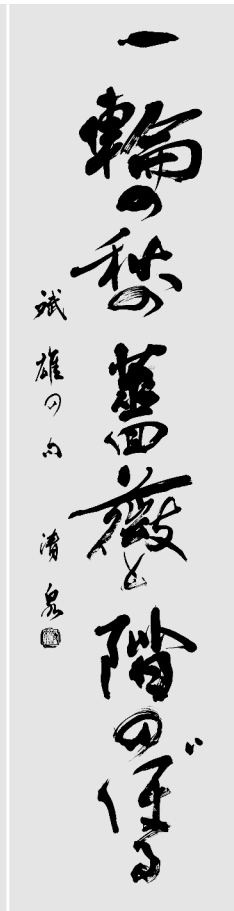 一輪の秋の薔薇と階のぼる
斌雄の句 清泉